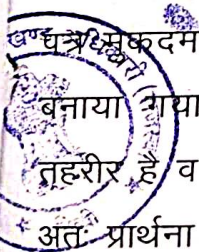 पत्र मुकदम
बनाया गया
तहरीर है व
अतः प्रार्थना